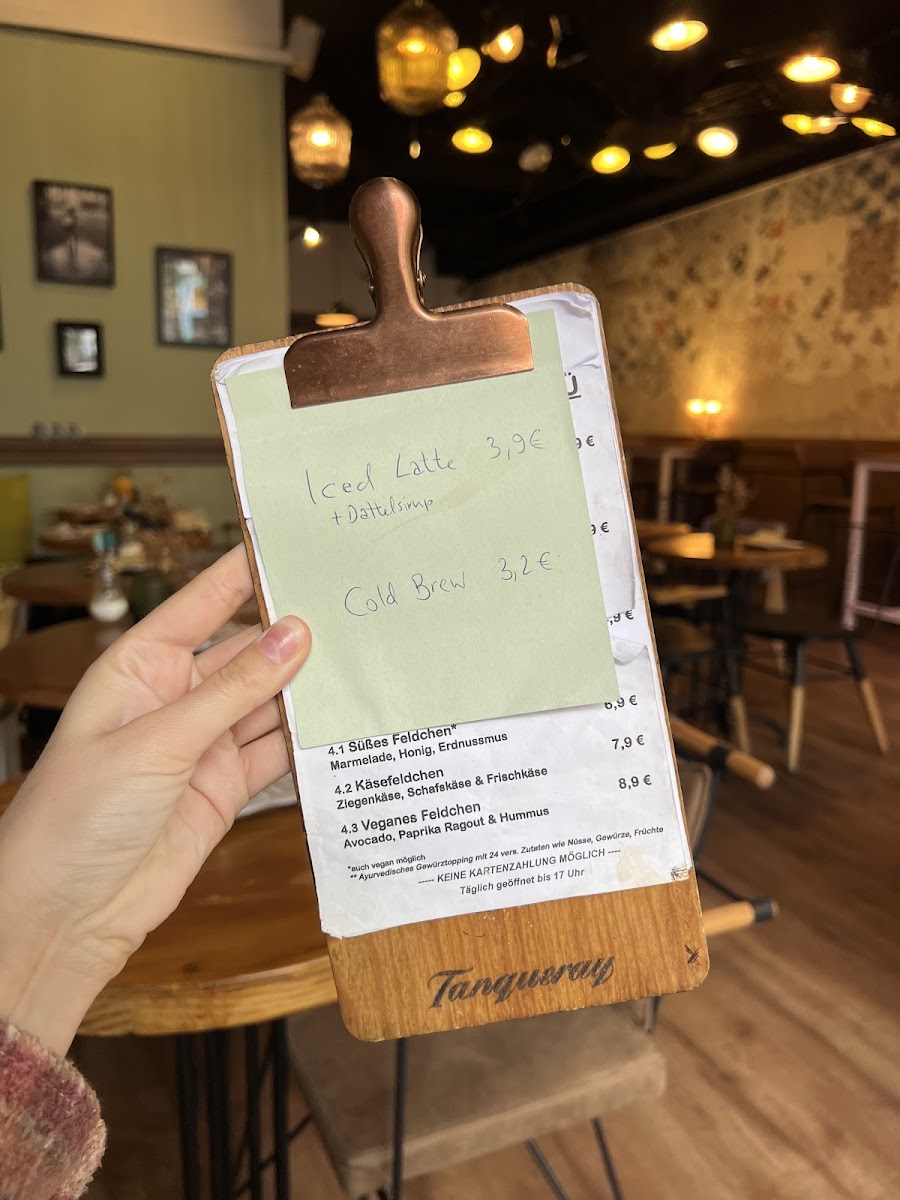 Iced Latte 3,9€
+Dattelsirup
Cold Brew 3,2€
Ü
9 €
9 €
,9 €
6,9 €
4.1 Süßes Feldchen*
Marmelade, Honig, Erdnussmus
7,9 €
4.2 Käsefeldchen
Ziegenkäse, Schafskäse & Frischkäse
8,9 €
4.3 Veganes Feldchen
Avocado, Paprika Ragout & Hummus
*auch vegan möglich
** Ayurvedisches Gewürztopping mit 24 vers. Zutaten wie Nüsse, Gewürze, Früchte
----- KEINE KARTENZAHLUNG MÖGLICH ----
Täglich geöffnet bis 17 Uhr
Tanqueray